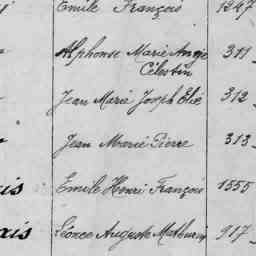 Emile François 1247
Alphonse Marie Ange 311
Célestin
Jean Marie Joseph Elie 312
Jean Marie Pierre 313
is Emile Henri François 1555
ais Léonce Auguste Mathurin 917